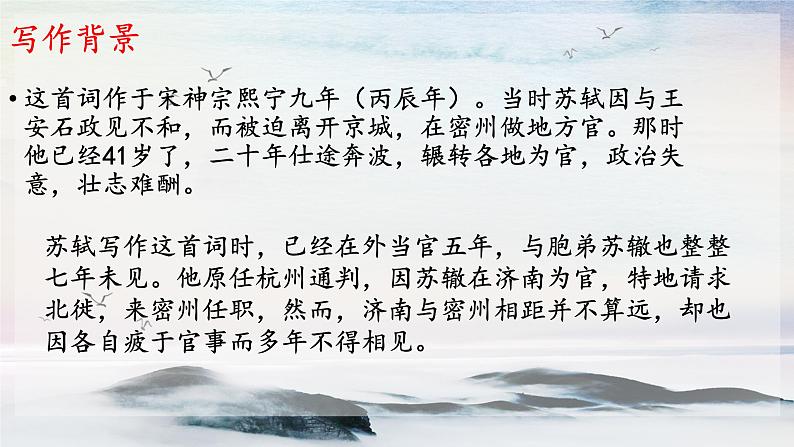 写作背景
•这首词作于宋神宗熙宁九年（丙辰年）。当时苏轼因与王
安石政见不和，而被迫离开京城，在密州做地方官。那时
他已经41岁了，二十年仕途奔波，辗转各地为官，政治失
意，壮志难酬。
苏轼写作这首词时，已经在外当官五年，与胞弟苏辙也整整
七年未见。他原任杭州通判，因苏辙在济南为官，特地请求
北徙，来密州任职，然而，济南与密州相距并不算远，却也
因各自疲于官事而多年不得相见。